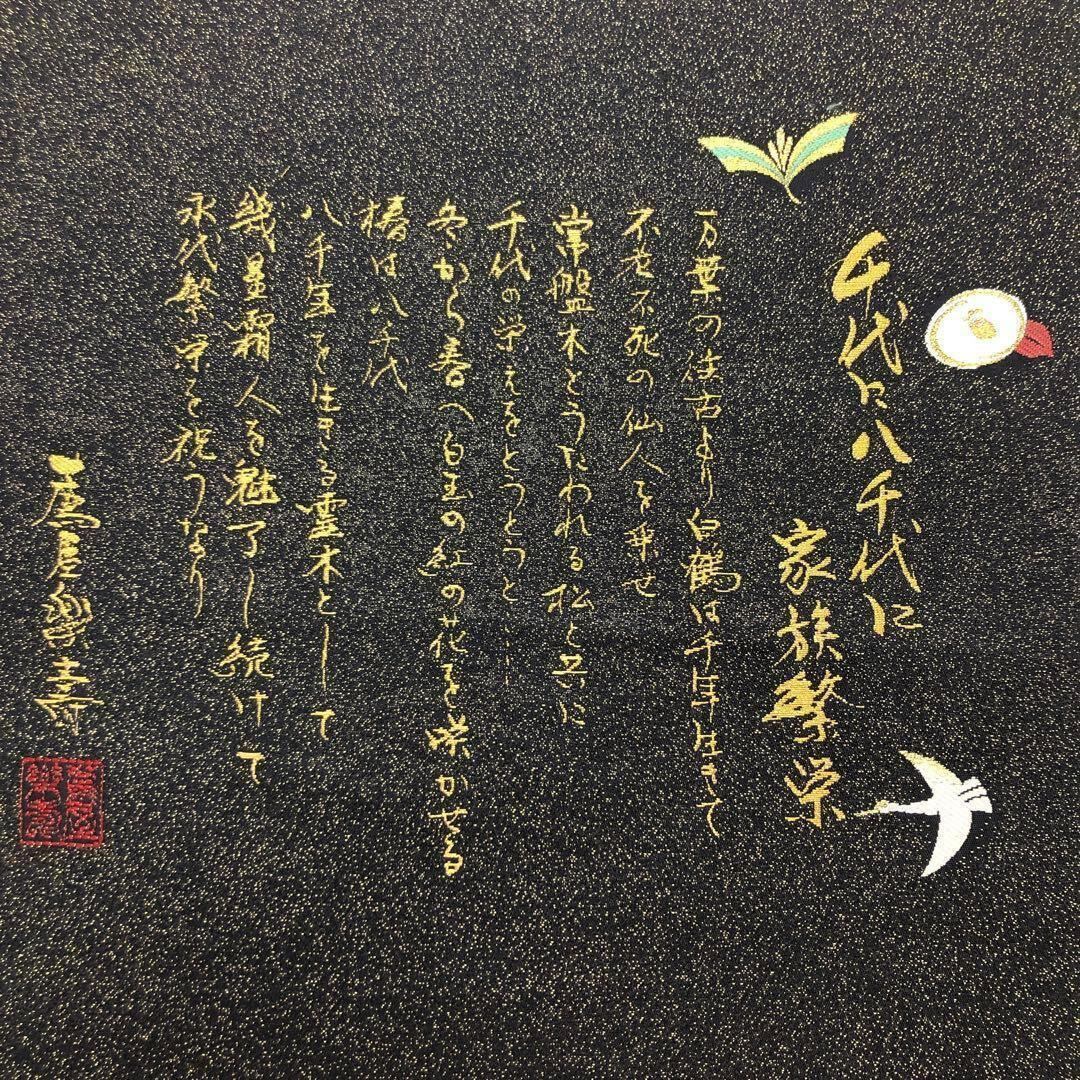 千代に八千代に
家族繁栄
万葉の往古より白鶴は千年生きて
不老不死の仙人を乗せ
常盤木とうたわれる松と共に
千代の栄えをとうとう
冬から春へ白玉の紅の花を咲かせる
椿は八千代
八千年を生きる霊木として
幾星霜人を魅了し続けて
永代繁栄を祝うなり